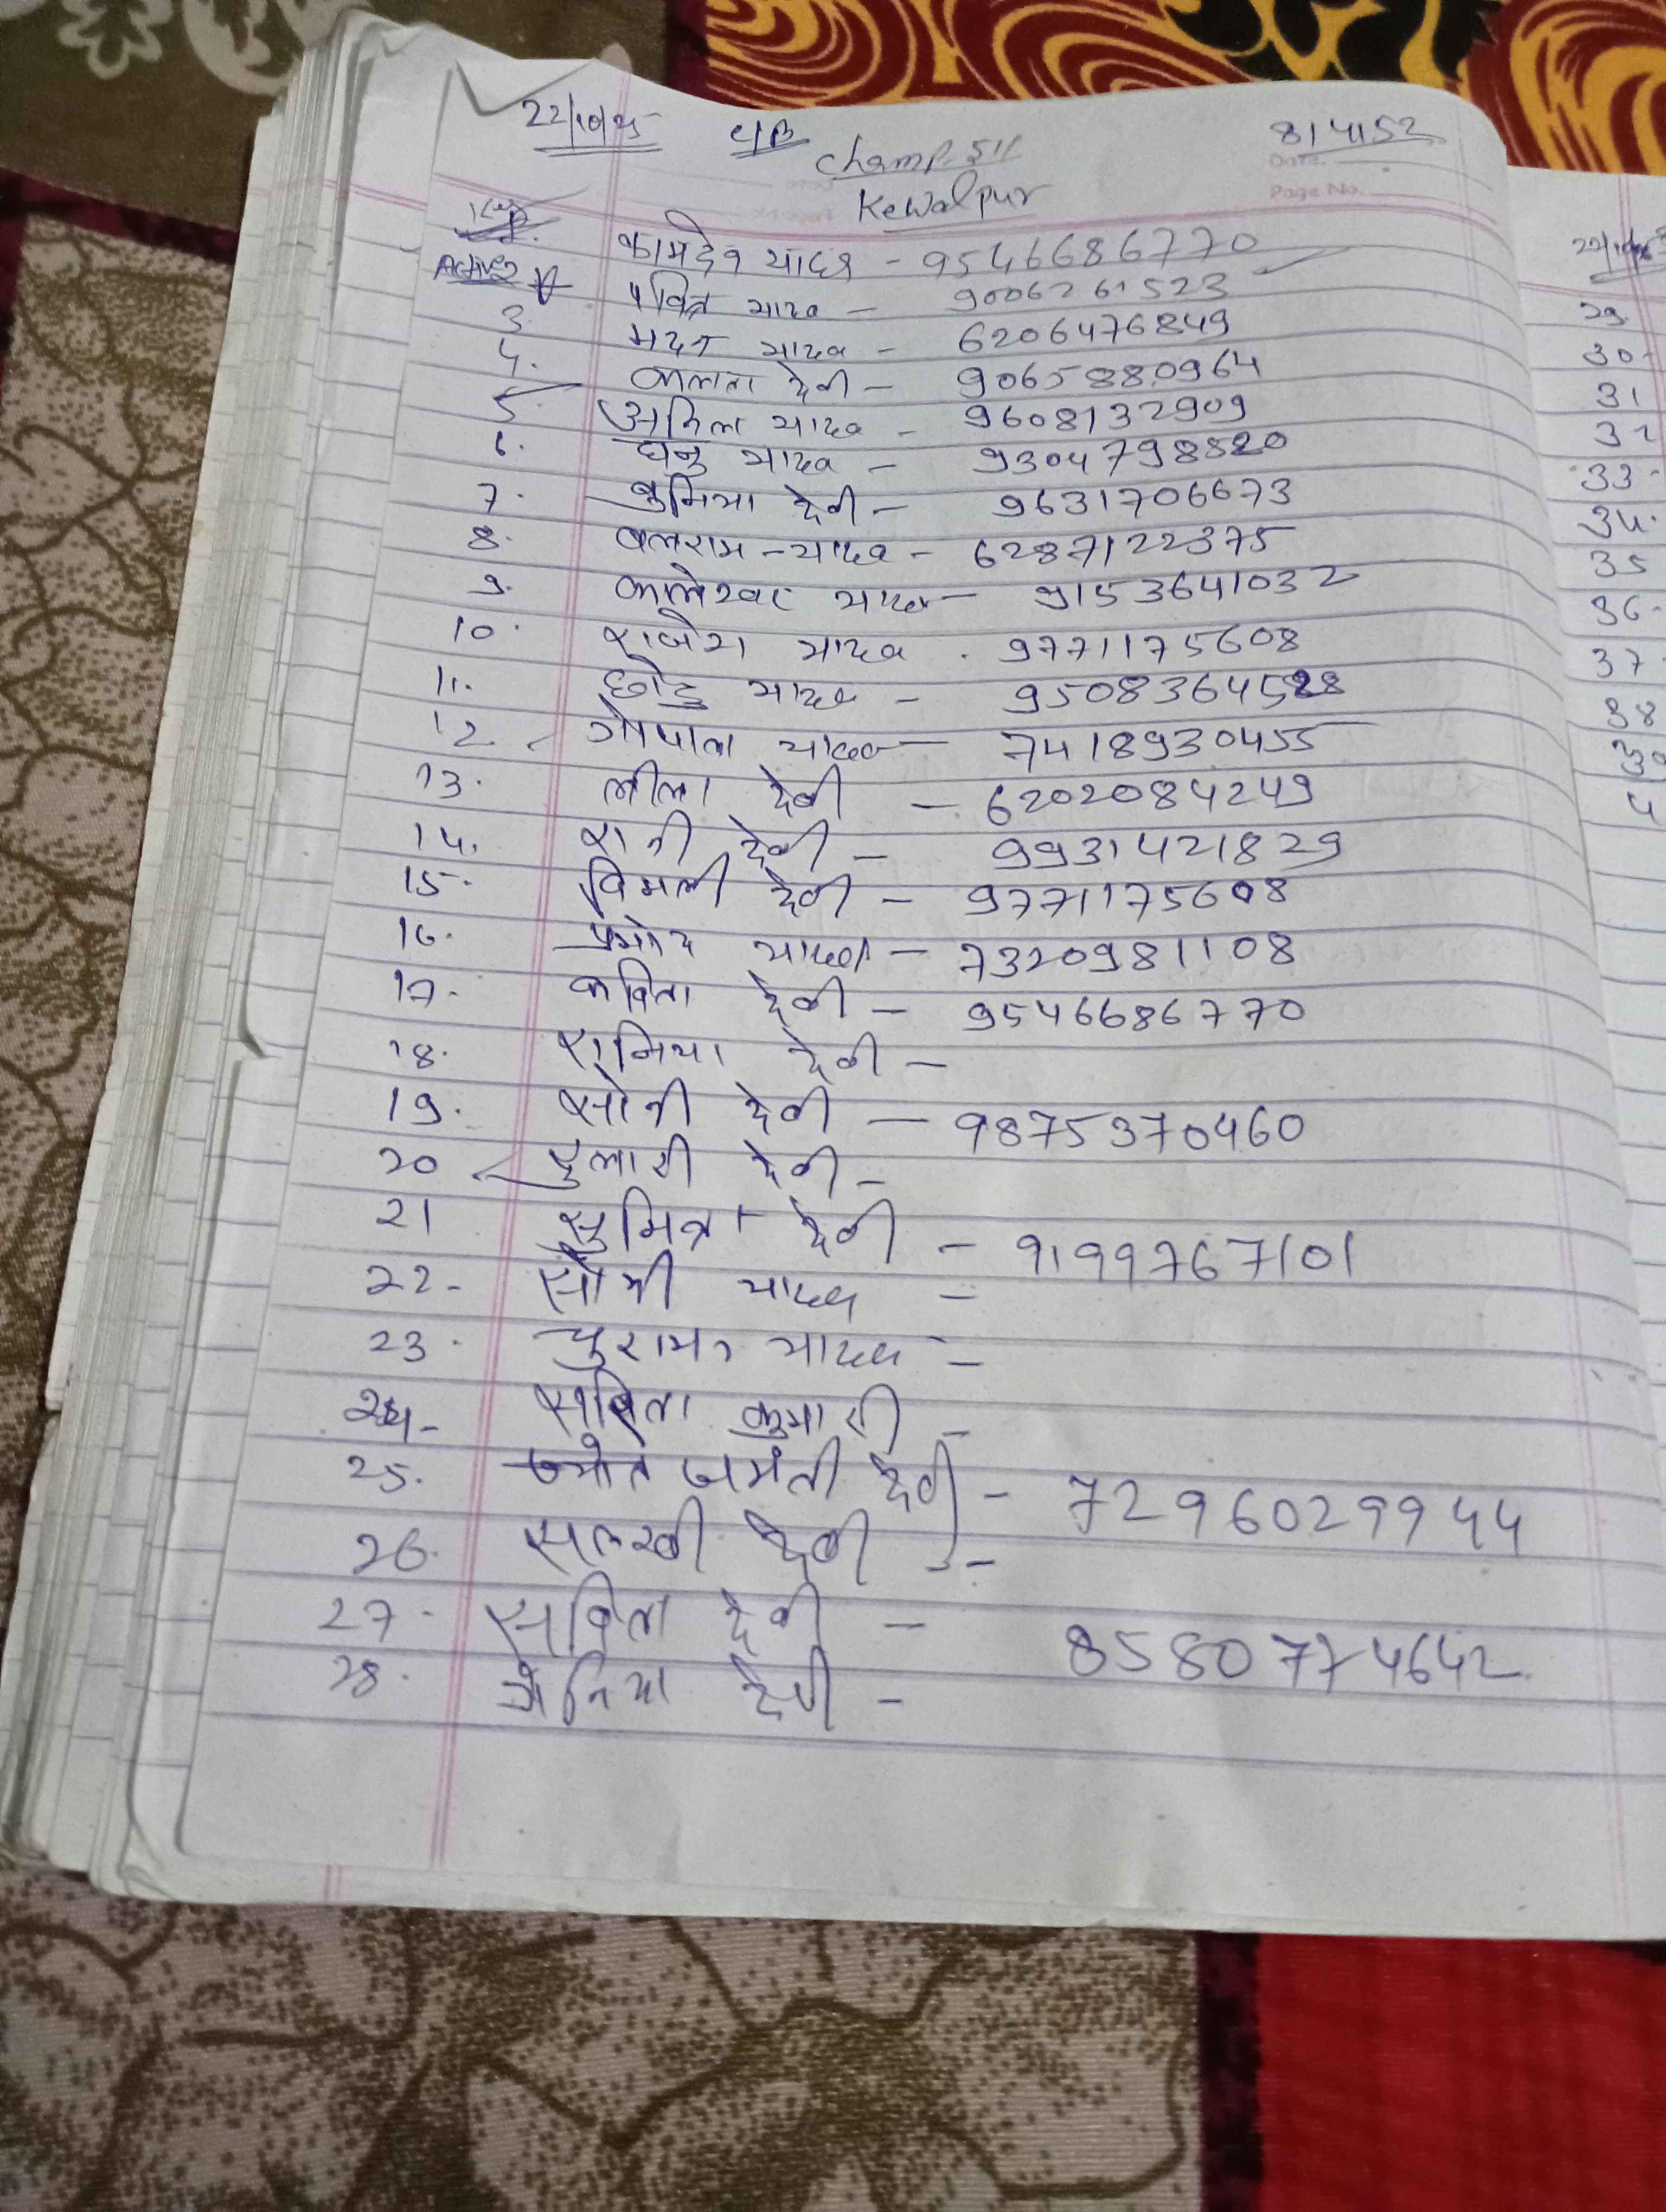 22/10/25 C/B 814152
Champ. 511
Date.
Kewalpur
Page No.
Key कामदेव यादव - 9546686770
Active पवित्र यादव - 9006261523
3. मदन यादव - 6206476849
4. कलता देवी - 9065880964
5. अनिल यादव - 9608132909
6. घनु यादव - 9304798820
7. बुनिया देवी - 9631706673
8. बलराम - यादव - 6287122375
9. कालेश्वर यादव - 9153641032
10. राजेश यादव . 9771175608
11. छोटु यादव - 9508364528
12 गोपाल यादव - 7418930455
13. लीला देवी - 6202084249
14. रानी देवी - 9931421829
15. विमली देवी - 9771175608
16. प्रमोद यादव - 7320981108
17. कविता देवी - 9546686770
18. सुनिया देवी -
19. सोनी देवी - 9875370460
20 दुलारी देवी -
21 सुमित्रा देवी - 9199767101
22 - सोनी यादव -
23. चुरामन यादव -
24 - सविता कुमारी -
25. जयंती देवी - 7296029944
26. सलखी देवी -
27. सविता देवी - 8580774642
28. देवी -
22/10/25
29
30
31
32
33
34.
35
36
37
38
39
4